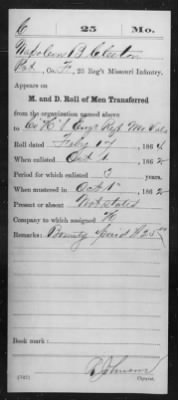 C 25 Mo.
Napoleon B. Cleeton
Pvt, Co. F, 25 Reg't Missouri Infantry.
Appears on
M. and D. Roll of Men Transferred
from the organization named above
to Co K 1 Eng'r Reg't Mo Vols
Roll dated Feby 17, 1864
When enlisted Oct 1, 1862
Period for which enlisted 3 years.
When mustered in Oct 1, 1862
Present or absent Not stated
Company to which assigned K
Remarks: Bounty paid $25
Book mark:
Johnson
(742) Copyist.